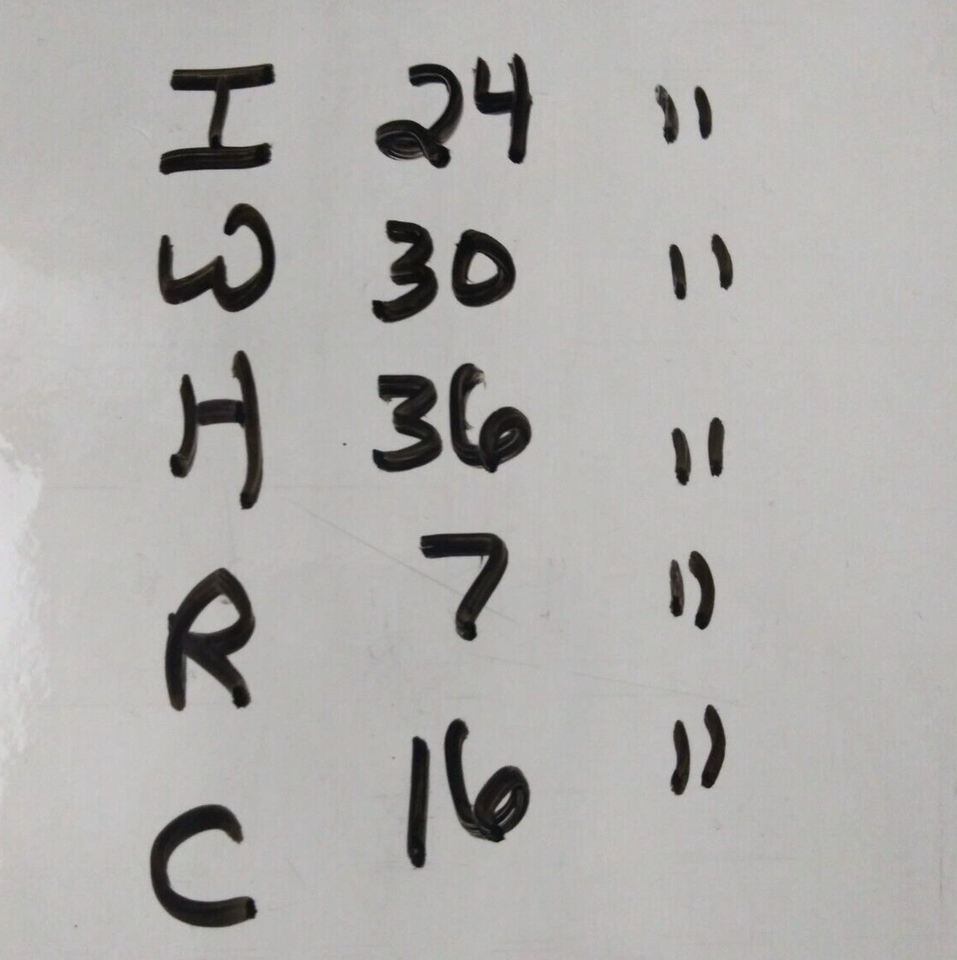 I 24 "
W 30 "
H 36 "
R 7 "
C 16 "